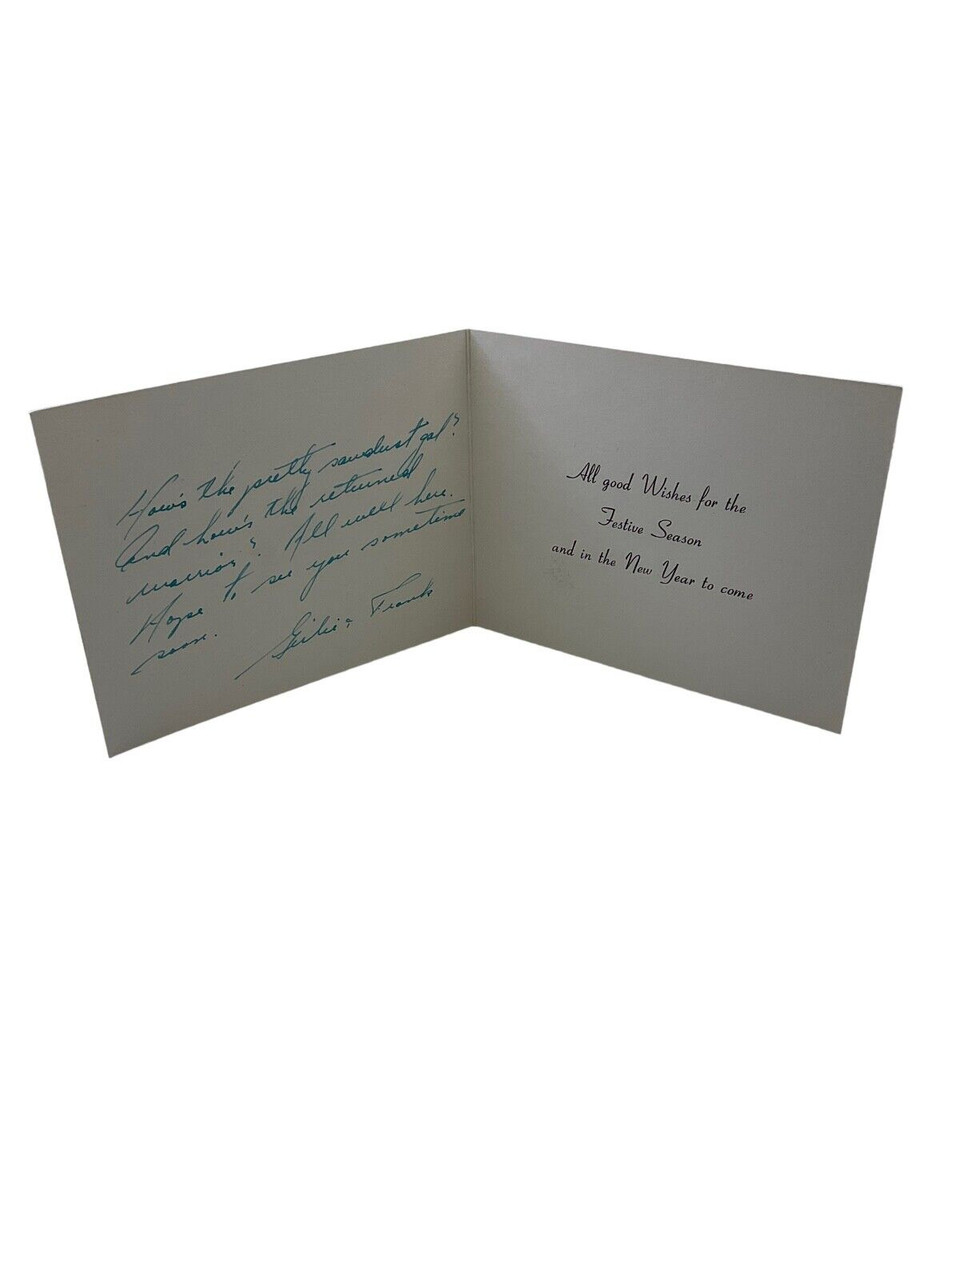 How's the pretty sawdust gal?
And how's the returned
warrior? All well here.
Hope to see you sometime
soon.
& Frank
All good Wishes for the
Festive Season
and in the New Year to come